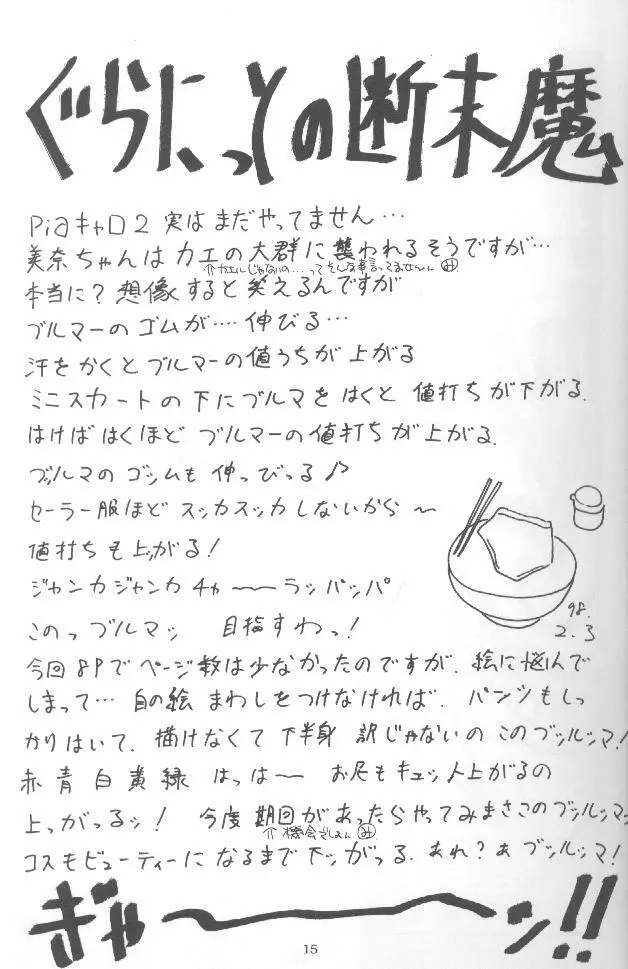 ぐらにっとの断末魔
Piaキャロ2 実はまだやってません…
美奈ちゃんはカエの大群に襲われるそうですが…
⇑カエルじゃないの…ってそんな事言ってませんん㊟
本当に?想像すると笑えるんですが
ブルマーのゴムが…. 伸びる…
汗をかくとブルマーの値うちが上がる
ミニスカートの下にブルマをはくと 値打ちが下がる.
はけばはくほど ブルマーの値打ちが上がる.
ブッルマのゴッムも 伸っびっる♪
セーラー服ほど スッカスッカしないから〜
値打ちも上ッがる!
ジャンカジャンカ チャ〜〜ラッパッパ
このっブルマッ 目指すわっ!
今回8Pでページ数は少なかったのですが、絵に悩んで
しまって… 自の絵 まわしをつけなければ、パンツもしっ
かりはいて、描けなくて下半身 訳じゃないの このブッルッマ!
赤 青 白 黄 緑 はっは〜 お尻もキュット上がるの
上っがっるッ! 今度 期回があったらやってみまさこのブッルッマッ
⇑機会でしょん
コスモビューティーになるまで下ッがっる、あれ?あ ブッルッマ!
ぎゃ〜〜ッ!!
98.
2.3
15